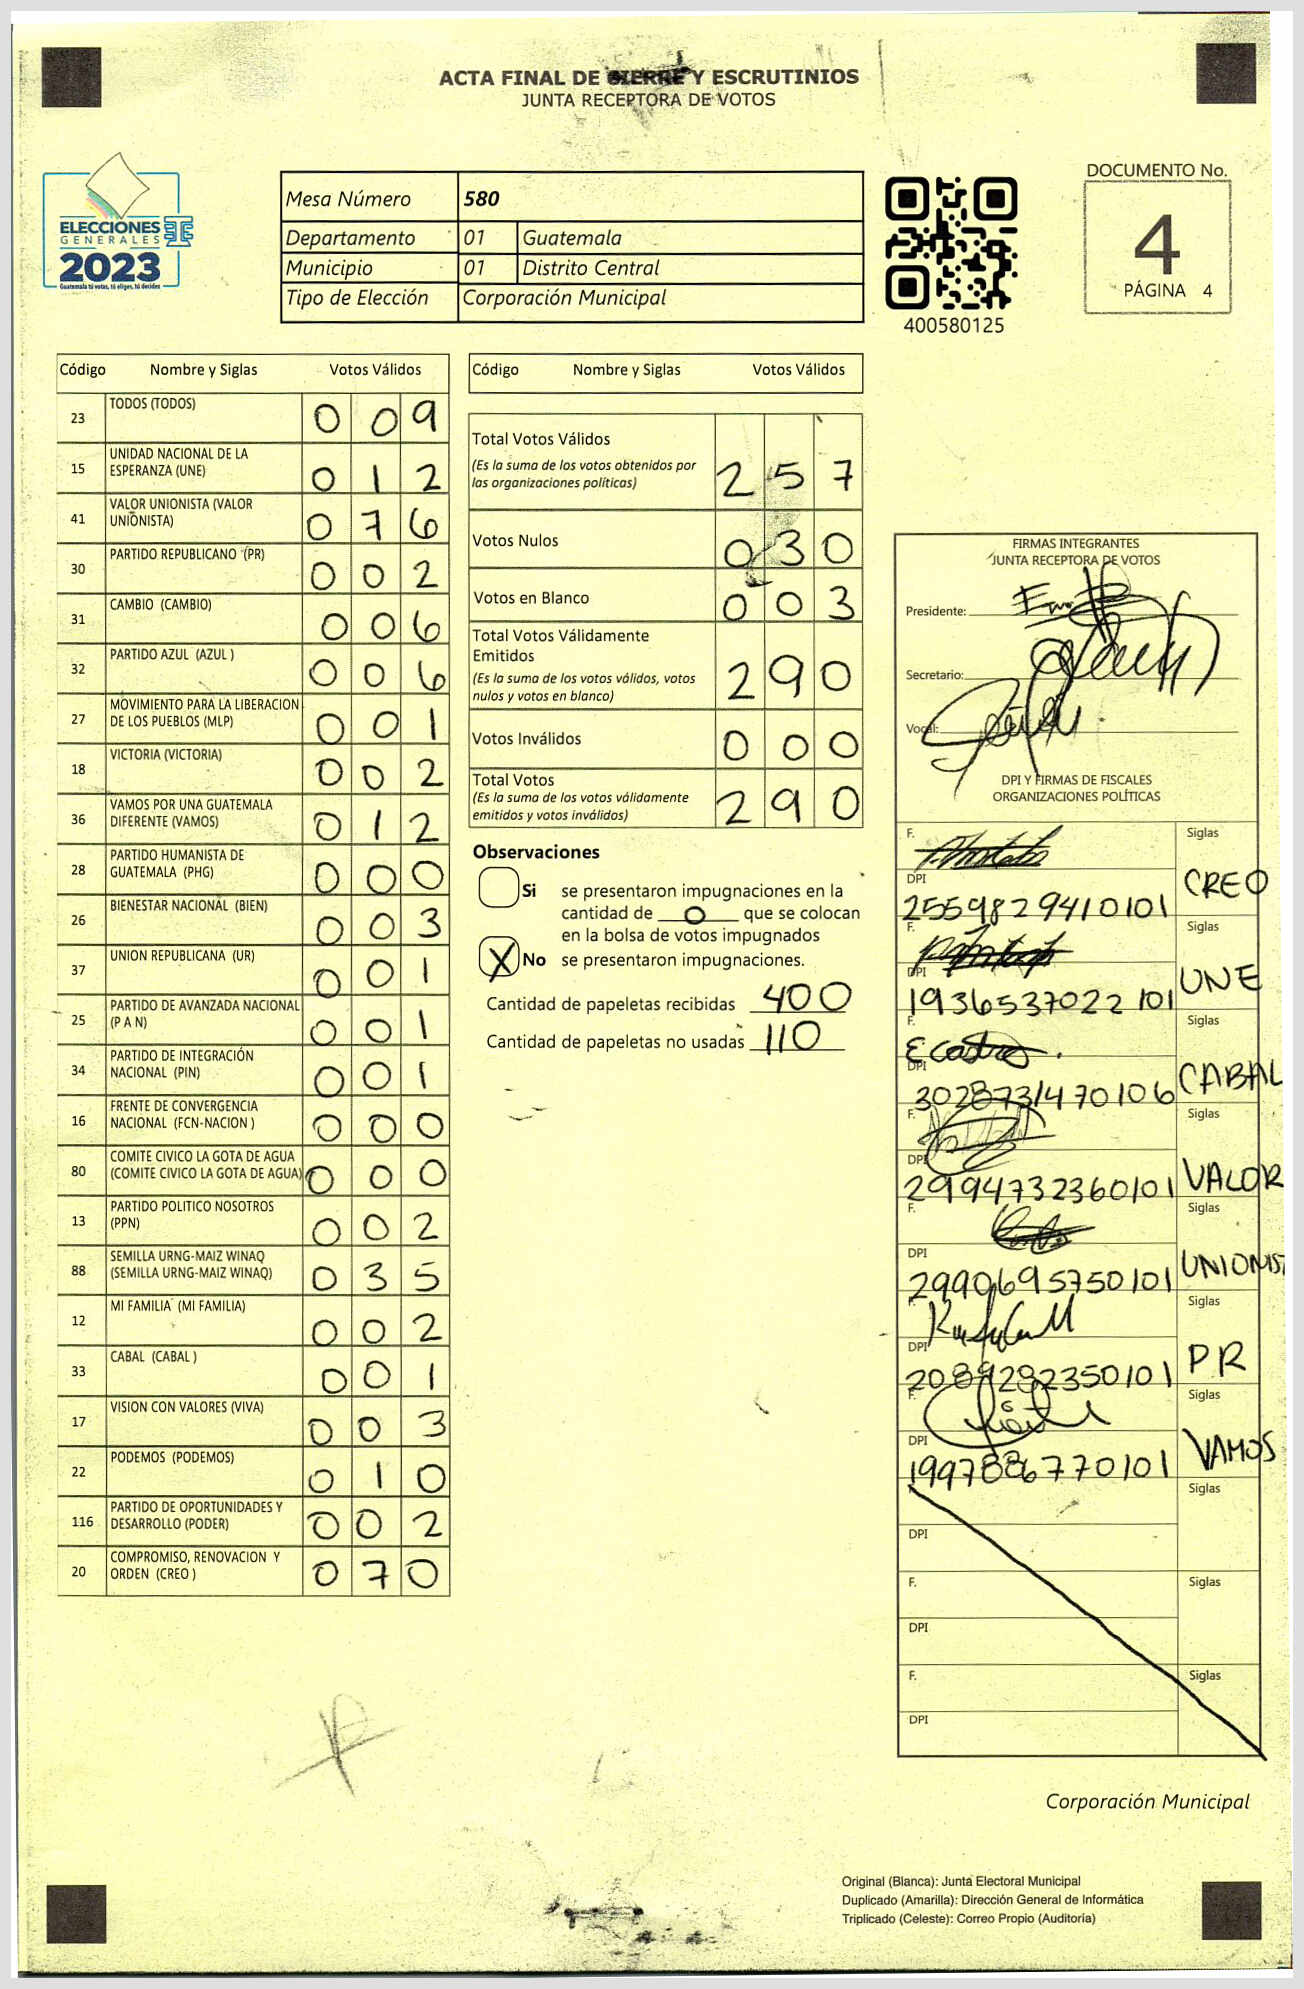 ACTA FINAL DE CIERRE Y ESCRUTINIOS
JUNTA RECEPTORA DE VOTOS
ELECCIONES
GENERALES
2023
Guatemala tú votas, tú eliges, tú decides
Mesa Número 580
Departamento 01 Guatemala
Municipio 01 Distrito Central
Tipo de Elección Corporación Municipal
400580125
DOCUMENTO No.
4
PÁGINA 4
Código Nombre y Siglas Votos Válidos
23 TODOS (TODOS) 0 0 9
15 UNIDAD NACIONAL DE LA ESPERANZA (UNE) 0 1 2
41 VALOR UNIONISTA (VALOR UNIONISTA) 0 7 6
30 PARTIDO REPUBLICANO (PR) 0 0 2
31 CAMBIO (CAMBIO) 0 0 6
32 PARTIDO AZUL (AZUL ) 0 0 6
27 MOVIMIENTO PARA LA LIBERACION DE LOS PUEBLOS (MLP) 0 0 1
18 VICTORIA (VICTORIA) 0 0 2
36 VAMOS POR UNA GUATEMALA DIFERENTE (VAMOS) 0 1 2
28 PARTIDO HUMANISTA DE GUATEMALA (PHG) 0 0 0
26 BIENESTAR NACIONAL (BIEN) 0 0 3
37 UNION REPUBLICANA (UR) 0 0 1
25 PARTIDO DE AVANZADA NACIONAL (P A N) 0 0 1
34 PARTIDO DE INTEGRACIÓN NACIONAL (PIN) 0 0 1
16 FRENTE DE CONVERGENCIA NACIONAL (FCN-NACION ) 0 0 0
80 COMITE CIVICO LA GOTA DE AGUA (COMITE CIVICO LA GOTA DE AGUA) 0 0 0
13 PARTIDO POLITICO NOSOTROS (PPN) 0 0 2
88 SEMILLA URNG-MAIZ WINAQ (SEMILLA URNG-MAIZ WINAQ) 0 3 5
12 MI FAMILIA (MI FAMILIA) 0 0 2
33 CABAL (CABAL ) 0 0 1
17 VISION CON VALORES (VIVA) 0 0 3
22 PODEMOS (PODEMOS) 0 1 0
116 PARTIDO DE OPORTUNIDADES Y DESARROLLO (PODER) 0 0 2
20 COMPROMISO, RENOVACION Y ORDEN (CREO ) 0 7 0
Código Nombre y Siglas Votos Válidos
Total Votos Válidos 2 5 7
(Es la suma de los votos obtenidos por
las organizaciones políticas)
Votos Nulos 0 3 0
Votos en Blanco 0 0 3
Total Votos Válidamente
Emitidos 2 9 0
(Es la suma de los votos válidos, votos
nulos y votos en blanco)
Votos Inválidos 0 0 0
Total Votos 2 9 0
(Es la suma de los votos válidamente
emitidos y votos inválidos)
Observaciones
Si se presentaron impugnaciones en la
cantidad de 0 que se colocan
en la bolsa de votos impugnados
X No se presentaron impugnaciones.
Cantidad de papeletas recibidas 400
Cantidad de papeletas no usadas 110
FIRMAS INTEGRANTES
JUNTA RECEPTORA DE VOTOS
Presidente:
Secretario:
Vocal:
DPI Y FIRMAS DE FISCALES
ORGANIZACIONES POLÍTICAS
F. Siglas
DPI 2559829410101 CREO
F. Siglas
DPI 1936537022101 UNE
F. E Castro Siglas
DPI 3028731470106 CABAL
F. Siglas
DPI 2994732360101 VALOR
F. Siglas
DPI 2990695750101 UNIONIST
F. Siglas
DPI 2089282350101 PR
F. Siglas
DPI 1997886770101 VAMOS
F. Siglas
DPI
F. Siglas
DPI
F. Siglas
DPI
Corporación Municipal
Original (Blanca): Junta Electoral Municipal
Duplicado (Amarilla): Dirección General de Informática
Triplicado (Celeste): Correo Propio (Auditoría)